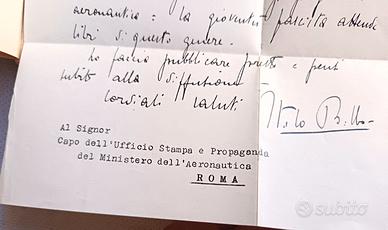 aeronautica: la gioventù fascista attende
libri di questo genere.
Lo faccia pubblicare presto e pensi
subito alla diffusione
Cordiali saluti
Italo Balbo
Al Signor
Capo dell'Ufficio Stampa e Propaganda
del Ministero dell'Aeronautica
ROMA
subito